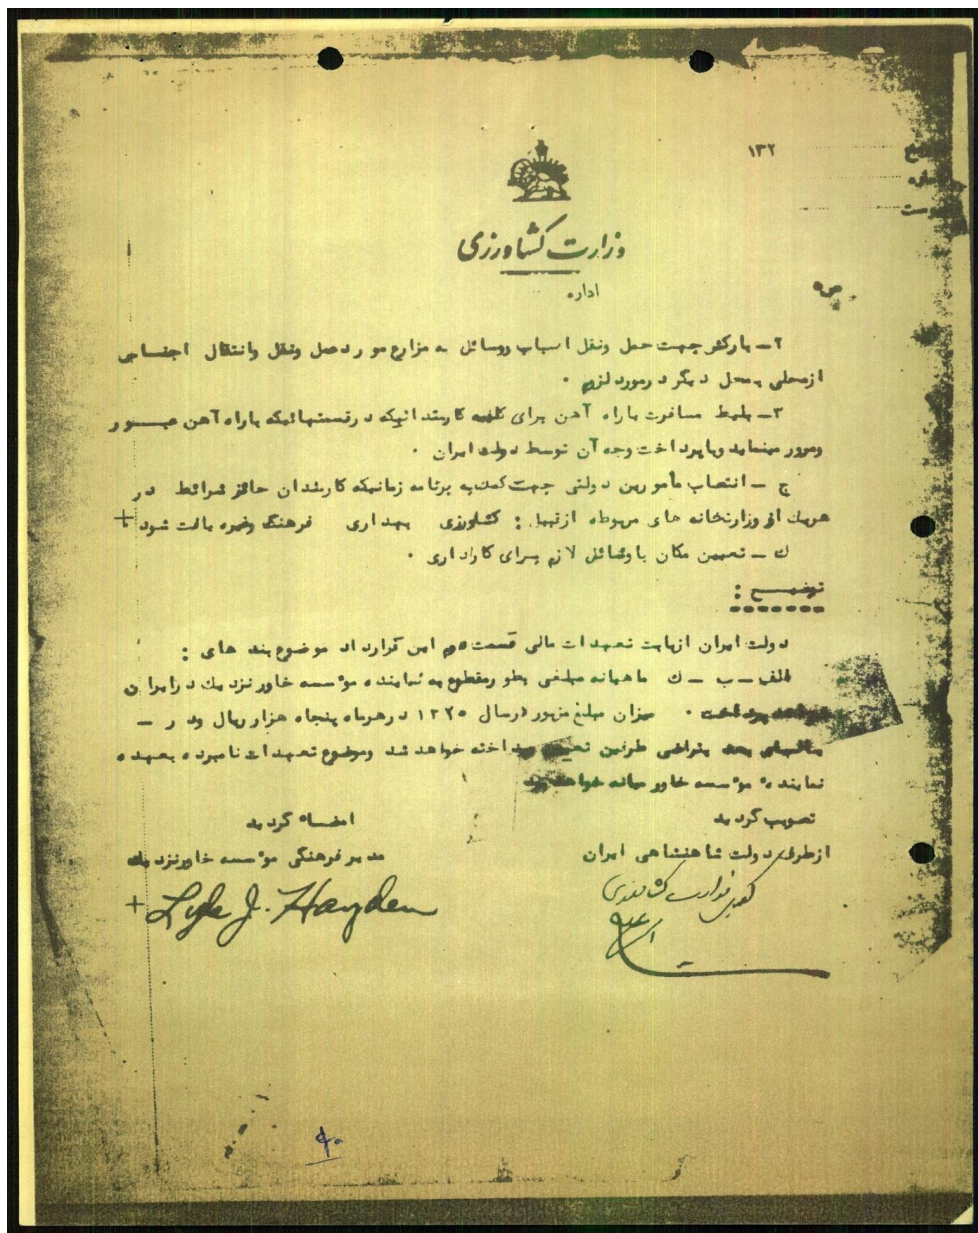 ۱۳۲
وزارت کشاورزی
اداره
۲ــ بارکش جهت حمل ونقل اسباب ووسائل به مزارع مورد حمل ونقل وانتقال اجناسی
ازمحلی بمحل دیگر درمورد لزوم .
۳ــ بلیط مسافرت باراه آهن برای کلیه کارمندانیکه درقسمتهائیکه باراه آهن عبــور
ومرور مینماید ویاپرداخت وجه آن توسط دولت ایران .
ج ــ انتصاب مأمورین دولتی جهت کمک به برنامه زمانیکه کارمندان حائز شرائط در
هریک از وزارتخانه های مربوطه ازقبیل : کشاورزی بهداری فرهنگ وغیره یافت شود
ک ــ تعیین مکان باوسائل لازم برای کاراداری .
توضیــح :
دولت ایران ازبابت تعهدات مالی قسمت دوم این قرارداد موضوع بند های :
الف ــ ب ــ ک ماهیانه مبلغی بطورمقطوع به نماینده مؤسسه خاورنزدیک درایران
خواهد پرداخت . میزان مبلغ مزبور درسال ۱۳۲۵ درهرماه پنجاه هزارریال ودر ــ
سالهای بعد بتراضی طرفین تعیین وپرداخته خواهد شد وموضوع تعهدات نامبرده بعهده
نماینده مؤسسه خاور میانه خواهد بود
تصویب گردید
امضـاء گردید
ازطرف دولت شاهنشاهی ایران
مدیرفرهنگی مؤسسه خاورنزدیک
کفیل وزارت کشاورزی
Lyle J. Hayden